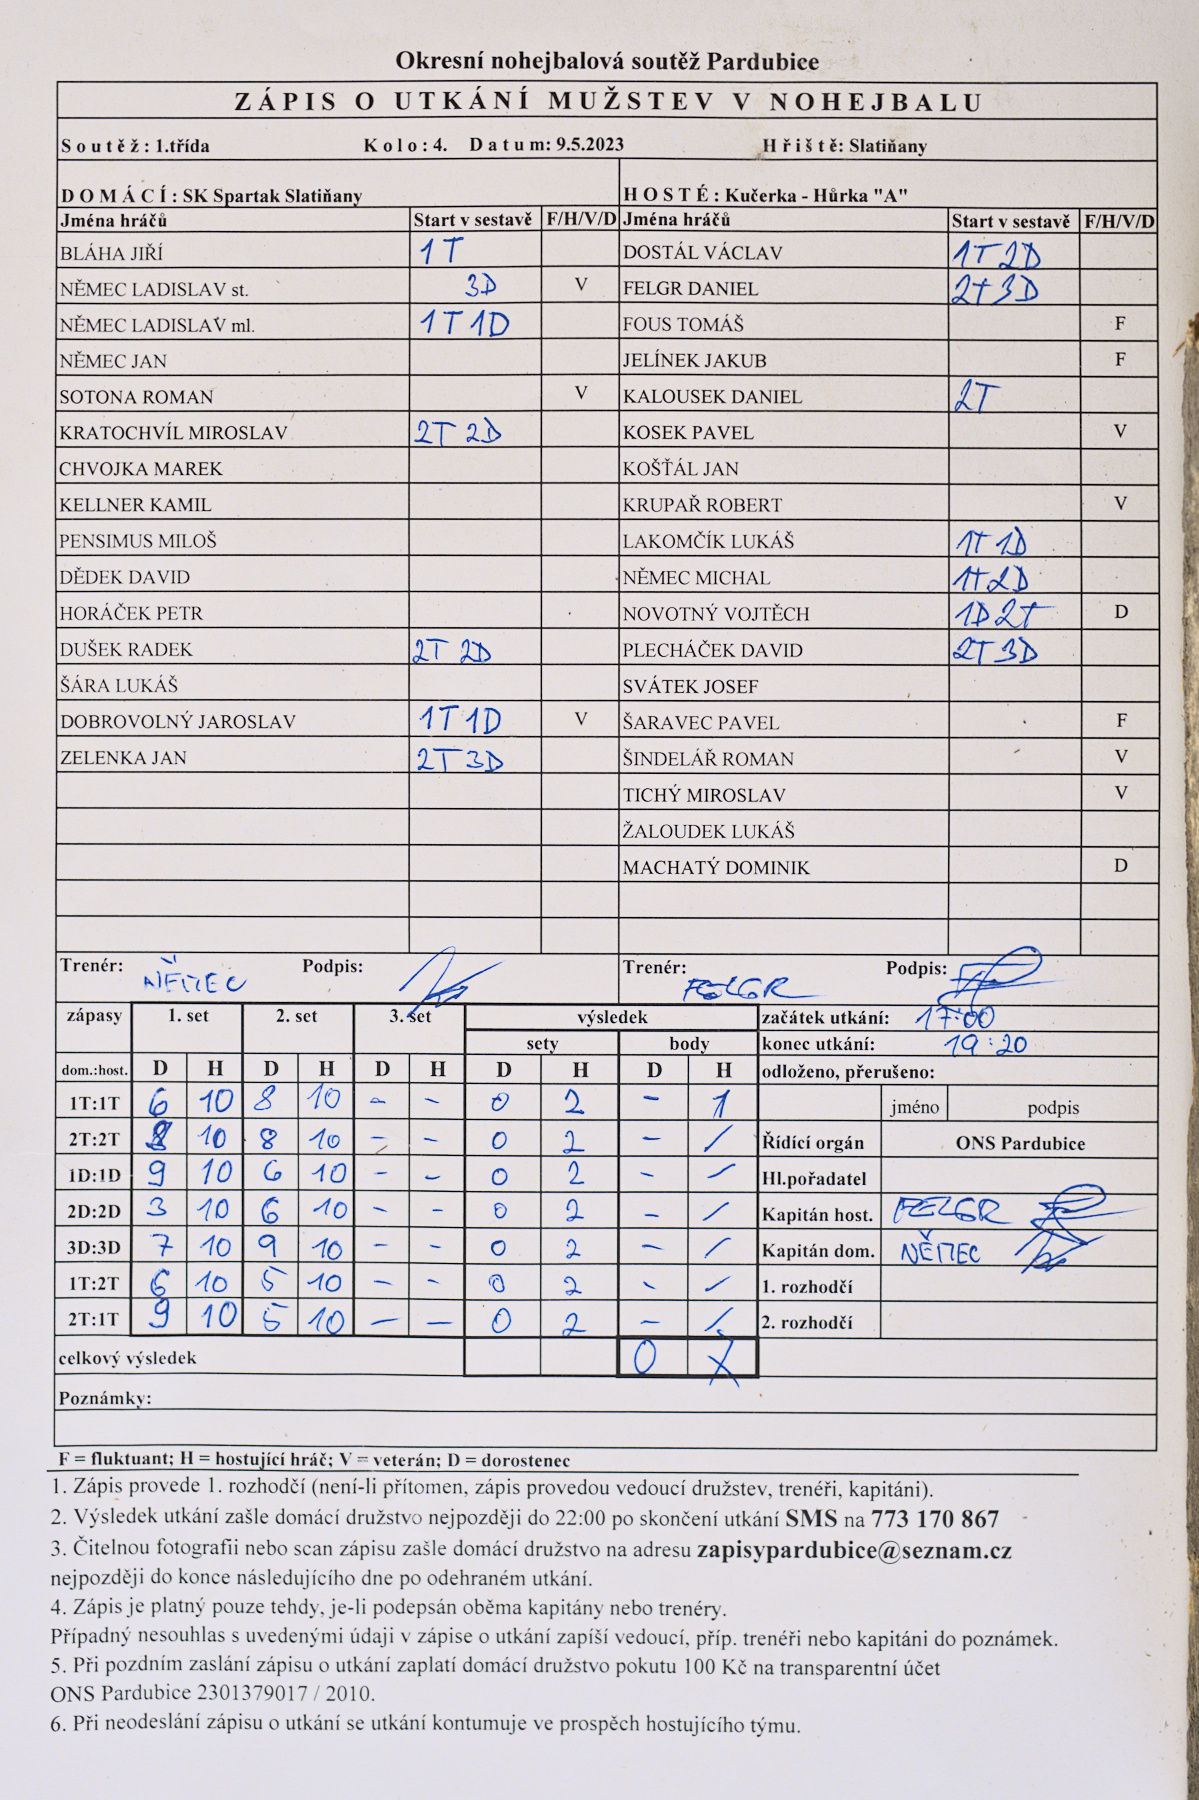 Okresní nohejbalová soutěž Pardubice
ZÁPIS O UTKÁNÍ MUŽSTEV V NOHEJBALU
Soutěž: 1.třída Kolo: 4. Datum: 9.5.2023 Hřiště: Slatiňany
DOMÁCÍ: SK Spartak Slatiňany HOSTÉ: Kučerka - Hůrka "A"
Jména hráčů Start v sestavě F/H/V/D Jména hráčů Start v sestavě F/H/V/D
BLÁHA JIŘÍ 1T DOSTÁL VÁCLAV 1T 2D
NĚMEC LADISLAV st. 3D V FELGR DANIEL 2T 3D
NĚMEC LADISLAV ml. 1T 1D FOUS TOMÁŠ F
NĚMEC JAN JELÍNEK JAKUB F
SOTONA ROMAN V KALOUSEK DANIEL 2T
KRATOCHVÍL MIROSLAV 2T 2D KOSEK PAVEL V
CHVOJKA MAREK KOŠŤÁL JAN
KELLNER KAMIL KRUPAŘ ROBERT V
PENSIMUS MILOŠ LAKOMČÍK LUKÁŠ 1T 1D
DĚDEK DAVID NĚMEC MICHAL 1T 2D
HORÁČEK PETR NOVOTNÝ VOJTĚCH 1D 2T D
DUŠEK RADEK 2T 2D PLECHÁČEK DAVID 2T 3D
ŠÁRA LUKÁŠ SVÁTEK JOSEF
DOBROVOLNÝ JAROSLAV 1T 1D V ŠARAVEC PAVEL F
ZELENKA JAN 2T 3D ŠINDELÁŘ ROMAN V
TICHÝ MIROSLAV V
ŽALOUDEK LUKÁŠ
MACHATÝ DOMINIK D
Trenér: NĚMEC Podpis: Trenér: FELGR Podpis:
zápasy 1. set 2. set 3. set výsledek začátek utkání: 17:00
sety body konec utkání: 19:20
dom.:host. D H D H D H D H D H odloženo, přerušeno:
1T:1T 6 10 8 10 - - 0 2 - 1 jméno podpis
2T:2T 8 10 8 10 - - 0 2 - / Řídící orgán ONS Pardubice
1D:1D 9 10 6 10 - - 0 2 - / Hl.pořadatel
2D:2D 3 10 6 10 - - 0 2 - / Kapitán host. FELGR
3D:3D 7 10 9 10 - - 0 2 - / Kapitán dom. NĚMEC
1T:2T 6 10 5 10 - - 0 2 - / 1. rozhodčí
2T:1T 9 10 5 10 - - 0 2 - / 2. rozhodčí
celkový výsledek 0 7
Poznámky:
F = fluktuant; H = hostující hráč; V = veterán; D = dorostenec
1. Zápis provede 1. rozhodčí (není-li přítomen, zápis provedou vedoucí družstev, trenéři, kapitáni).
2. Výsledek utkání zašle domácí družstvo nejpozději do 22:00 po skončení utkání SMS na 773 170 867
3. Čitelnou fotografii nebo scan zápisu zašle domácí družstvo na adresu zapisypardubice@seznam.cz
nejpozději do konce následujícího dne po odehraném utkání.
4. Zápis je platný pouze tehdy, je-li podepsán oběma kapitány nebo trenéry.
Případný nesouhlas s uvedenými údaji v zápise o utkání zapíší vedoucí, příp. trenéři nebo kapitáni do poznámek.
5. Při pozdním zaslání zápisu o utkání zaplatí domácí družstvo pokutu 100 Kč na transparentní účet
ONS Pardubice 2301379017 / 2010.
6. Při neodeslání zápisu o utkání se utkání kontumuje ve prospěch hostujícího týmu.